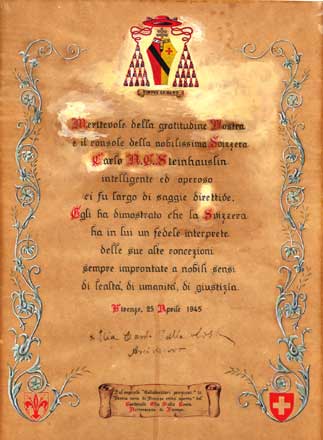 Meritevole della gratitudine Nostra
è il console della nobilissima Svizzera
Carlo A.C. Steinhauslin
intelligente ed operoso
ci fu largo di saggie direttive.
Egli ha dimostrato che la Svizzera
ha in lui un fedele interprete
delle sue alte concezioni
sempre improntate a nobili sensi
di lealta', di umanita', di giustizia.
Firenze, 25 Aprile 1945
+ Elia Card. Dalla Costa
Arcivescovo
Cardinale Elia Dalla Costa
Arcivescovo di Firenze